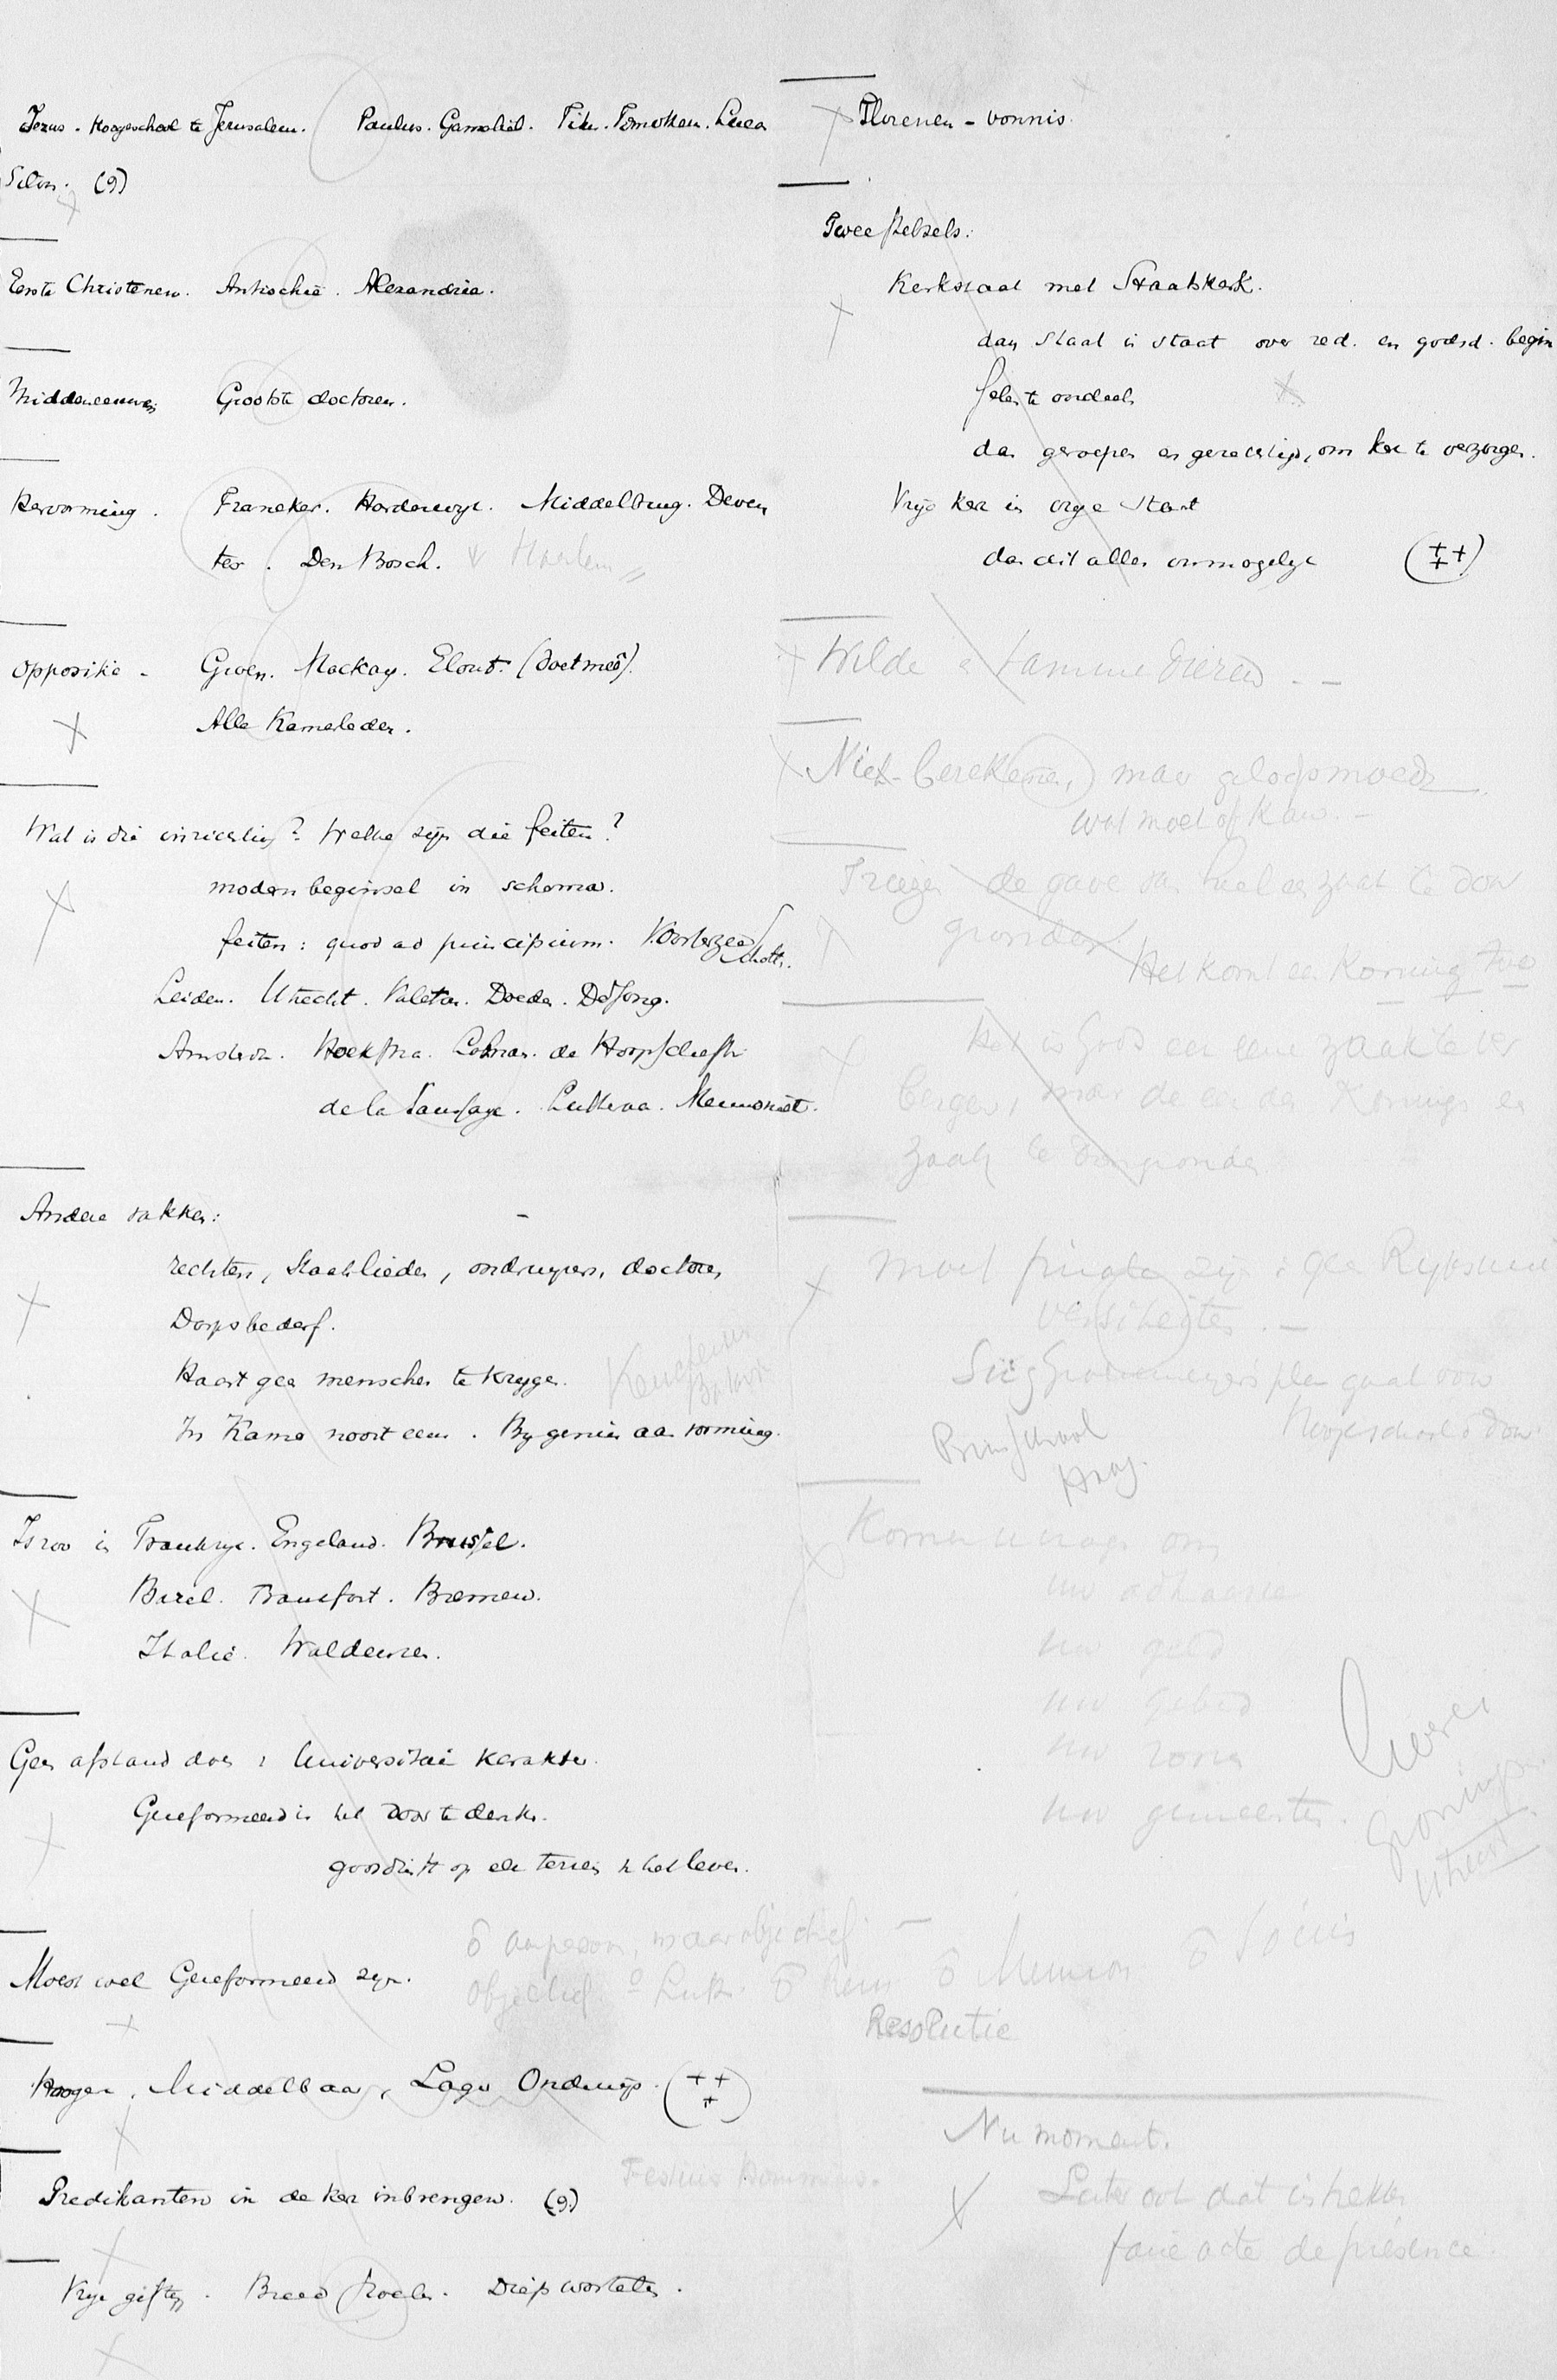 Jezus. Hoogeschool te Jerusalem. Paulus. Gamaliël. Titus. Timotheus. Lucas
Silas. (9)
Eerste Christenen. Antiochië. Alexandrië.
Middeneeuwen Grootste doctoren.
Hervorming. Franeker. Harderwijk. Middelburg. Deven
ter. Den Bosch. Haarlem
Oppositie. Groen. Mackay. Elout. (doet mee).
Alle Kamerleden.
Wat is die inrichting? Welke zijn die feiten?
modern beginsel in schema.
feiten: quod ad principium. V. Oosterzee
Leiden. Utrecht. Valeton. Doedes. De Jong.
Amsterd. Hoekstra. Lohman. de Hoop Scheffer
de la Saussaye. Luthera. Mennoniet.
Andere vakken:
rechten, Staatslieden, onderwijzers, doctoren
Dorpsbederf.
Haast geen menschen te krijgen.
In Kamer nooit een. Bij genieën aan vorming.
Keuchenius
Is zoo in Frankrijk. Engeland. Brussel.
Bazel. Francfort. Bremen.
Italië. Waldenzen.
Geen afstand doen v Universitair karakter.
Gereformeerd is het door te denken.
goosdienst op elk terrein v het leven.
Moest wel Gereformeerd zijn.
o aan persoon, maar objectief
objectief. o Luth. o Rem o Mennon o Socin
Hooger, Middelbaar, Lager Onderwijs. (+++)
Predikanten in de kerk inbrengen. (9)
Festus Hommius.
Vrije giften. Breed Diep wortelen.
Florenen - vonnis.
Twee stelsels:
Kerkstaat met Staatskerk.
dan staat in staat over red. en godsd. begin
selen te oordeelen
dan geroepen en gerechtigd, om kerk te verzorgen.
Vrije kerk in vrije Staat
dan dit alles onmogelijk (+++)
Wilde & tamme dieren. -
Niet berekenen, maar geloofsmoed
wat moet of kan. -
Krijgen de gave om heel een zaak te door
gronden.
Het komt een Koning toe
Het is Gods eer eene zaak te ver
bergen, maar de eer der Koningen een
zaak te doorgronden
moet privaat zijn: geen Rijksuni
versiteiten. -
plan gaat voor
Hoogeschool
Prins school
Haag.
Komen u vragen om
uw adhaesie
uw geld
uw gebed
uw zonen
uw gemeenten.
Groningen
Utrecht
Resolutie
Nu moment.
Later ook dat intrekken
faire acte de présence.